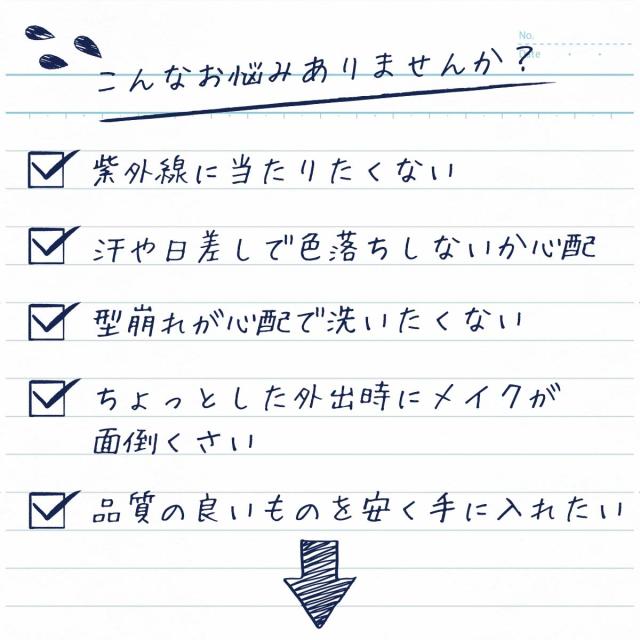 No.
Date
こんなお悩みありませんか?
紫外線に当たりたくない
汗や日差しで色落ちしないか心配
型崩れが心配で洗いたくない
ちょっとした外出時にメイクが
面倒くさい
品質の良いものを安く手に入れたい